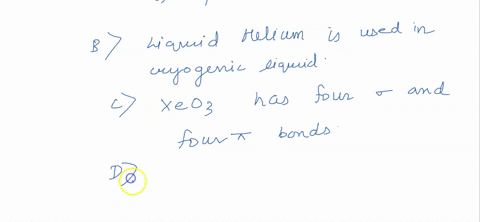 B> Liquid Helium is used in
cryogenic liquid.
C> XeO3 has four σ and
four π bonds.
D>